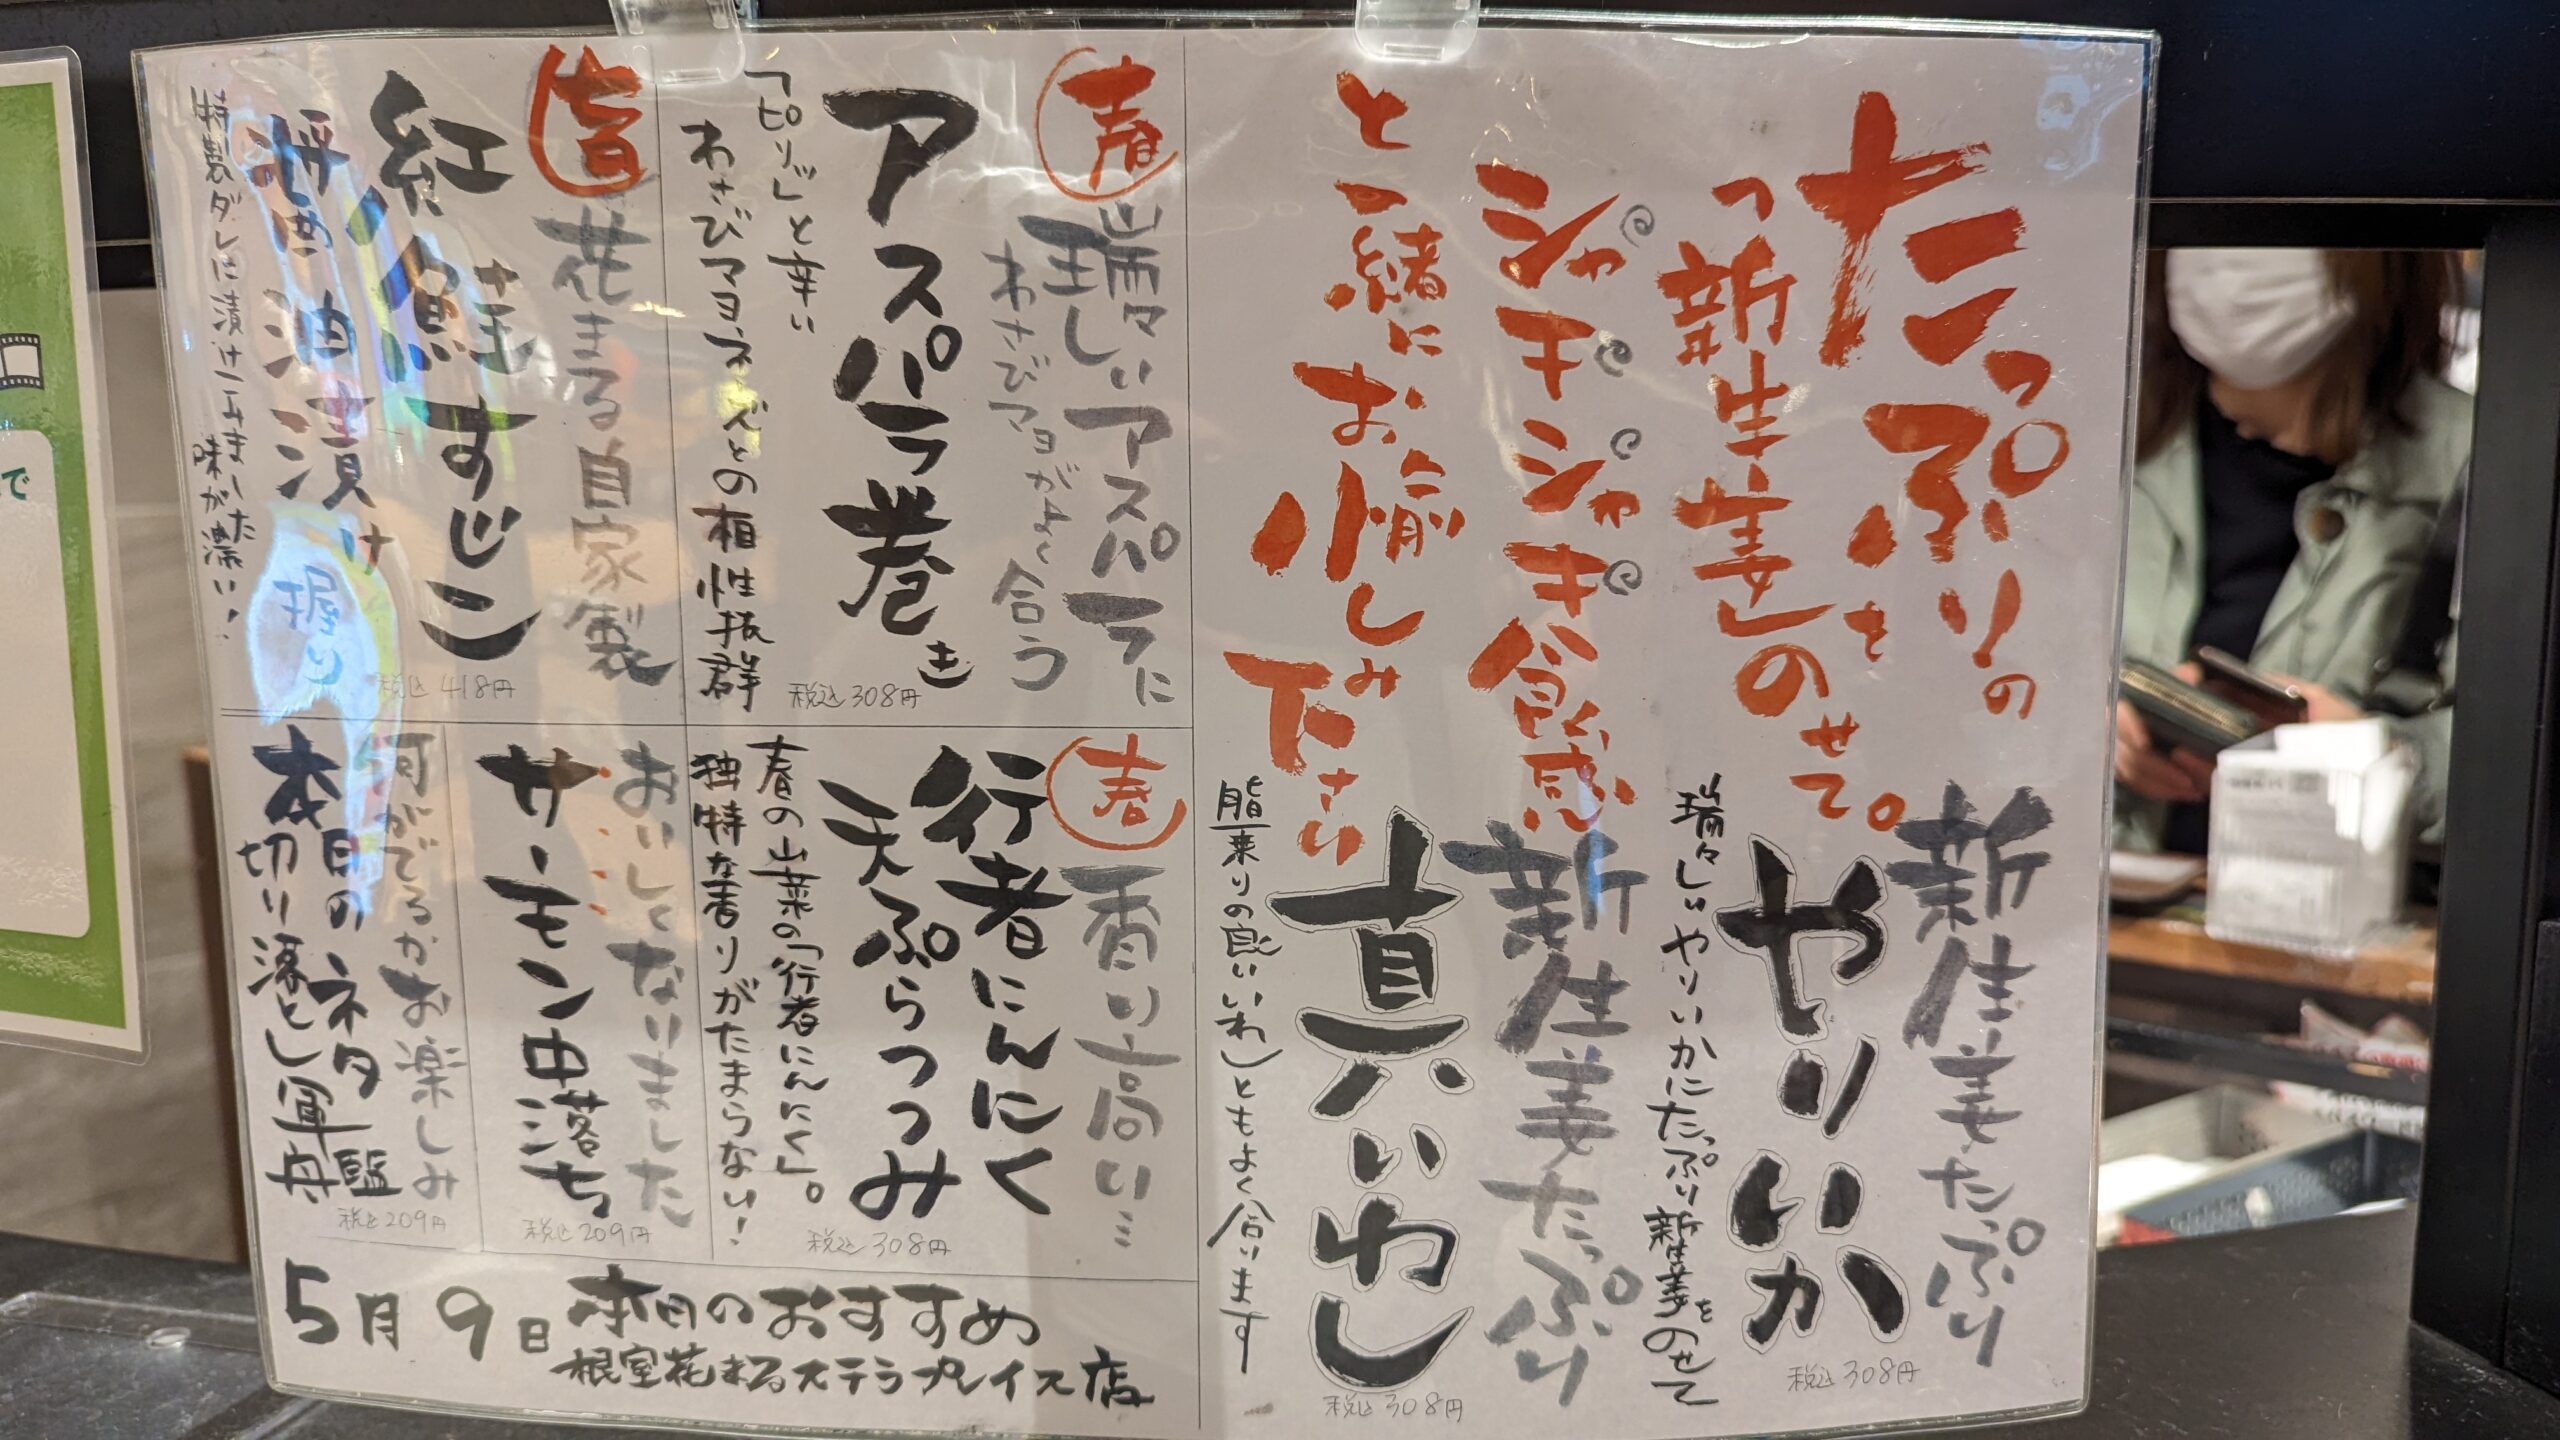 たっぷりの
「新生姜」のせて。を
シャキシャキ食感
と一緒にお愉しみ下さい
新生姜たっぷり
やりいか
瑞々しいやりいかにたっぷり新生姜をのせて
税込308円
新生姜たっぷり
真いわし
脂乗りの良いいわしともよく合います
税込308円
春
瑞々しいアスパラに
わさびマヨがよく合う
アスパラ巻き
「ピリッ」と辛い
わさびマヨネーズとの相性抜群
税込308円
春
香り高い…
行者にんにく
天ぷらつつみ
春の山菜の「行者にんにく」。
独特な香りがたまらない!
税込308円
花まる自家製
紅鮭すじこ
醤油漬け
握り
特製ダレに漬けこみました
味が濃い!
税込418円
おいしくなりました
サーモン中落ち
税込209円
何がでるかお楽しみ
本日のネタ
切り落とし軍艦
税込209円
5月9日
本日のおすすめ
根室花まるステラプレイス店
で